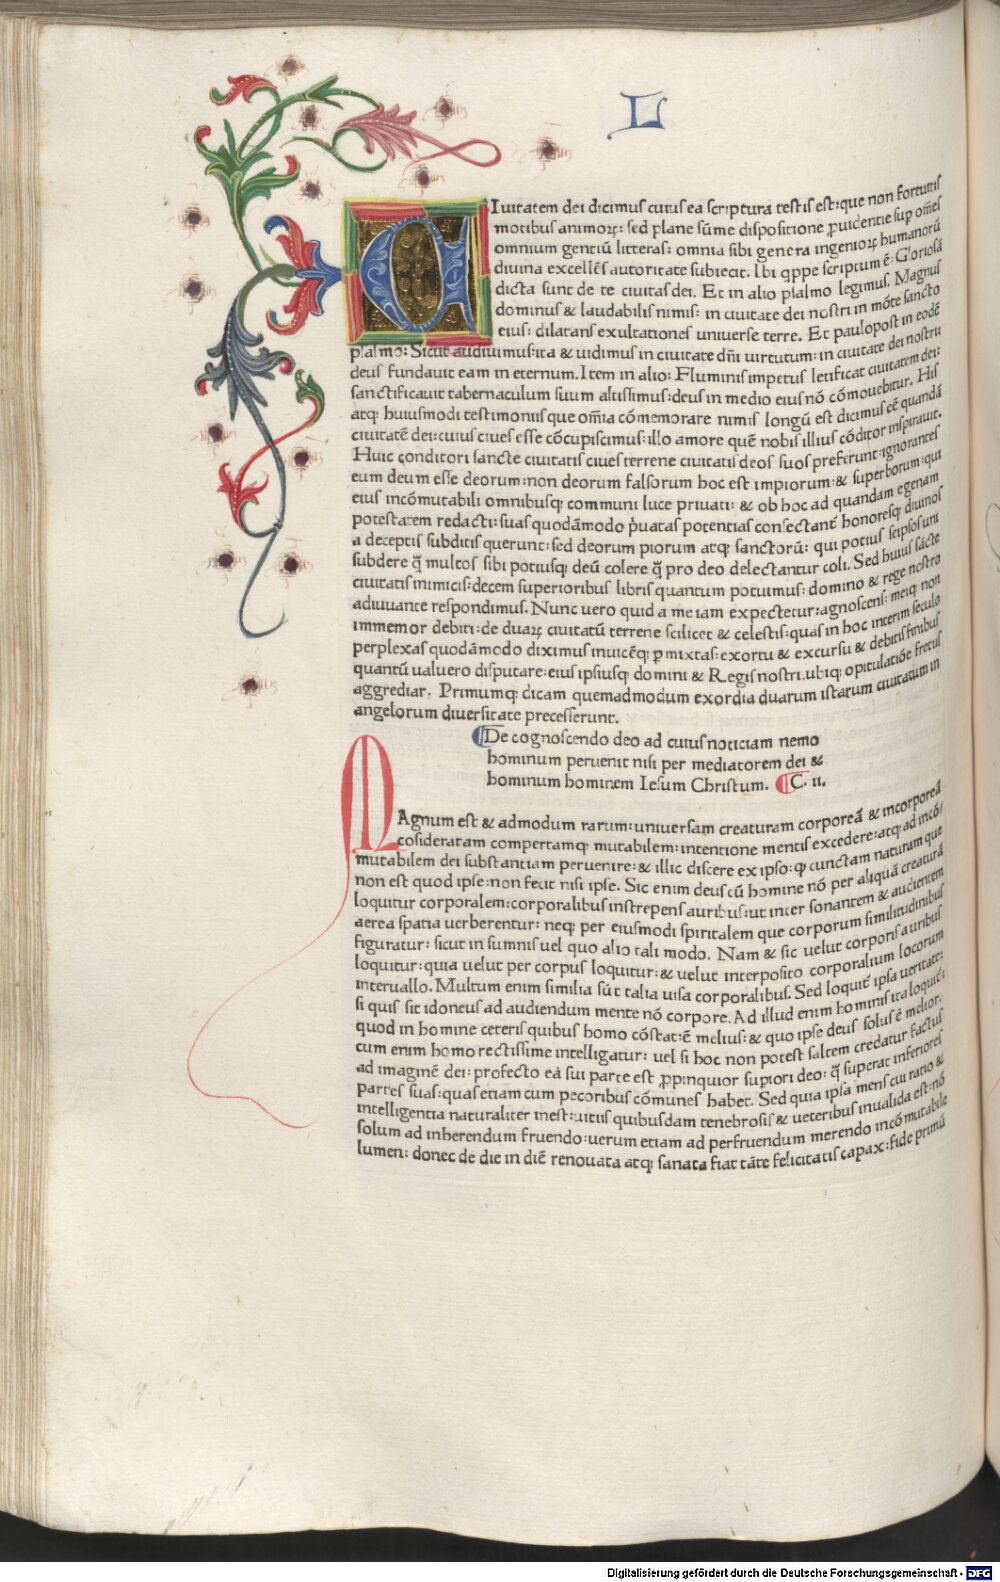 L
CIuitatem dei dicimus cuius ea scriptura testis est: que non fortuitis
motibus animoꝝ: sed plane sūme dispositione ꝓuidentie sup om̄es
omnium gentiū litteras: omnia sibi genera ingenioꝝ humanorū
diuina excellēs autoritate subiecit. Ibi qppe scriptum ē: Gloriosā
dicta sunt de te ciuitas dei. Et in alio psalmo legimus. Magnus
dominus & laudabilis nimis: in ciuitate dei nostri in mōte sancto
eius: dilatans exultationes uniuerse terre. Et paulopost in eodē
psalmo: Sicut audiuimus: ita & uidimus in ciuitate dn̄i uirtutum: in ciuitate dei nostri:
deus fundauit eam in eternum. Item in alio: Fluminis impetus letificat ciuitatem dei:
sanctificauit tabernaculum suum altissimus: deus in medio eius nō cōmouebitur. His
atq; huiusmodi testimoniis que om̄ia cōmemorare nimis longū est dicimus eē quandā
ciuitatē dei: cuius ciues esse cōcupiscimus: illo amore quē nobis illius cōditor inspirauit.
Huic conditori sancte ciuitatis ciues terrene ciuitatis deos suos preferunt: ignorantes
eum deum esse deorum: non deorum falsorum hoc est impiorum: & superborum: qui
eius incōmutabili omnibusq; communi luce priuati: & ob hoc ad quandam egenam
potestatem redacti: suas quodāmodo p̄uatas potentias consectant̄ honoresq; diuinos
a deceptis subditis querunt: sed deorum piorum atq; sanctorū: qui potius seipsos uni
subdere q̄ multos sibi potiusq; deū colere q̄ pro deo delectantur coli. Sed huius sācte
ciuitatis inimicis: decem superioribus libris quantum potuimus: domino & rege nostro
adiuuante respondimus. Nunc uero quid a me iam expectetur: agnoscens: meiq; non
immemor debiti: de duaꝝ ciuitatū terrene scilicet & celestis: quas in hoc interim seculo
perplexas quodāmodo diximus inuicēq; ꝑmixtas: exortu & excursu & debitis finibus
quantū ualuero disputare: eius ipsiusq; domini & Regis nostri. ubiq; opitulatiōe fretus
aggrediar. Primumq; dicam quemadmodum exordia duarum istarum ciuitatum in
angelorum diuersitate precesserunt.
¶De cognoscendo deo ad cuius noticiam nemo
hominum peruenit nisi per mediatorem dei &
hominum hominem Iesum Christum. ¶C. ii.
MAgnum est & admodum rarum: uniuersam creaturam corporeā & incorporeā
cosideratam compertamq; mutabilem: intentione mentis excedere: atq; ad incō/
mutabilem dei substantiam peruenire: & illic discere ex ipso: ꝙ cunctam naturam que
non est quod ipse: non fecit nisi ipse. Sic enim deus cū homine nō per aliquā creaturā
loquitur corporalem: corporalibus instrepens auribus: ut inter sonantem & audientem
aerea spatia uerberentur: neq; per eiusmodi spiritalem que corporum similitudinibus
figuratur: sicut in sumnis uel quo alio tali modo. Nam & sic uelut corporis auribus
loquitur: quia uelut per corpus loquitur: & uelut interposito corporalium locorum
interuallo. Multum enim similia sūt talia uisa corporalibus. Sed loquit̄ ipsa ueritate:
si quis sit idoneus ad audiendum mente nō corpore. Ad illud enim hominis ita loquit̄:
quod in homine ceteris quibus homo cōstat: ē melius: & quo ipse deus solus ē melior.
cum enim homo rectissime intelligatur: uel si hoc non potest saltem credatur factus
ad imaginē dei: profecto eā sui parte est ꝓpinquior supiori deo: q̄ superat inferiores
partes suas: quas etiam cum pecoribus cōmunes habet. Sed quia ipsa mens cui ratio &
intelligentia naturaliter inest: uitiis quibusdam tenebrosis & ueteribus inualida est: nō
solum ad inherendum fruendo: uerum etiam ad perfruendum merendo incōmutabile
lumen: donec de die in diē renouata atq; sanata fiat tāte felicitatis capax: fide primū
Digitalisierung gefördert durch die Deutsche Forschungsgemeinschaft - DFG